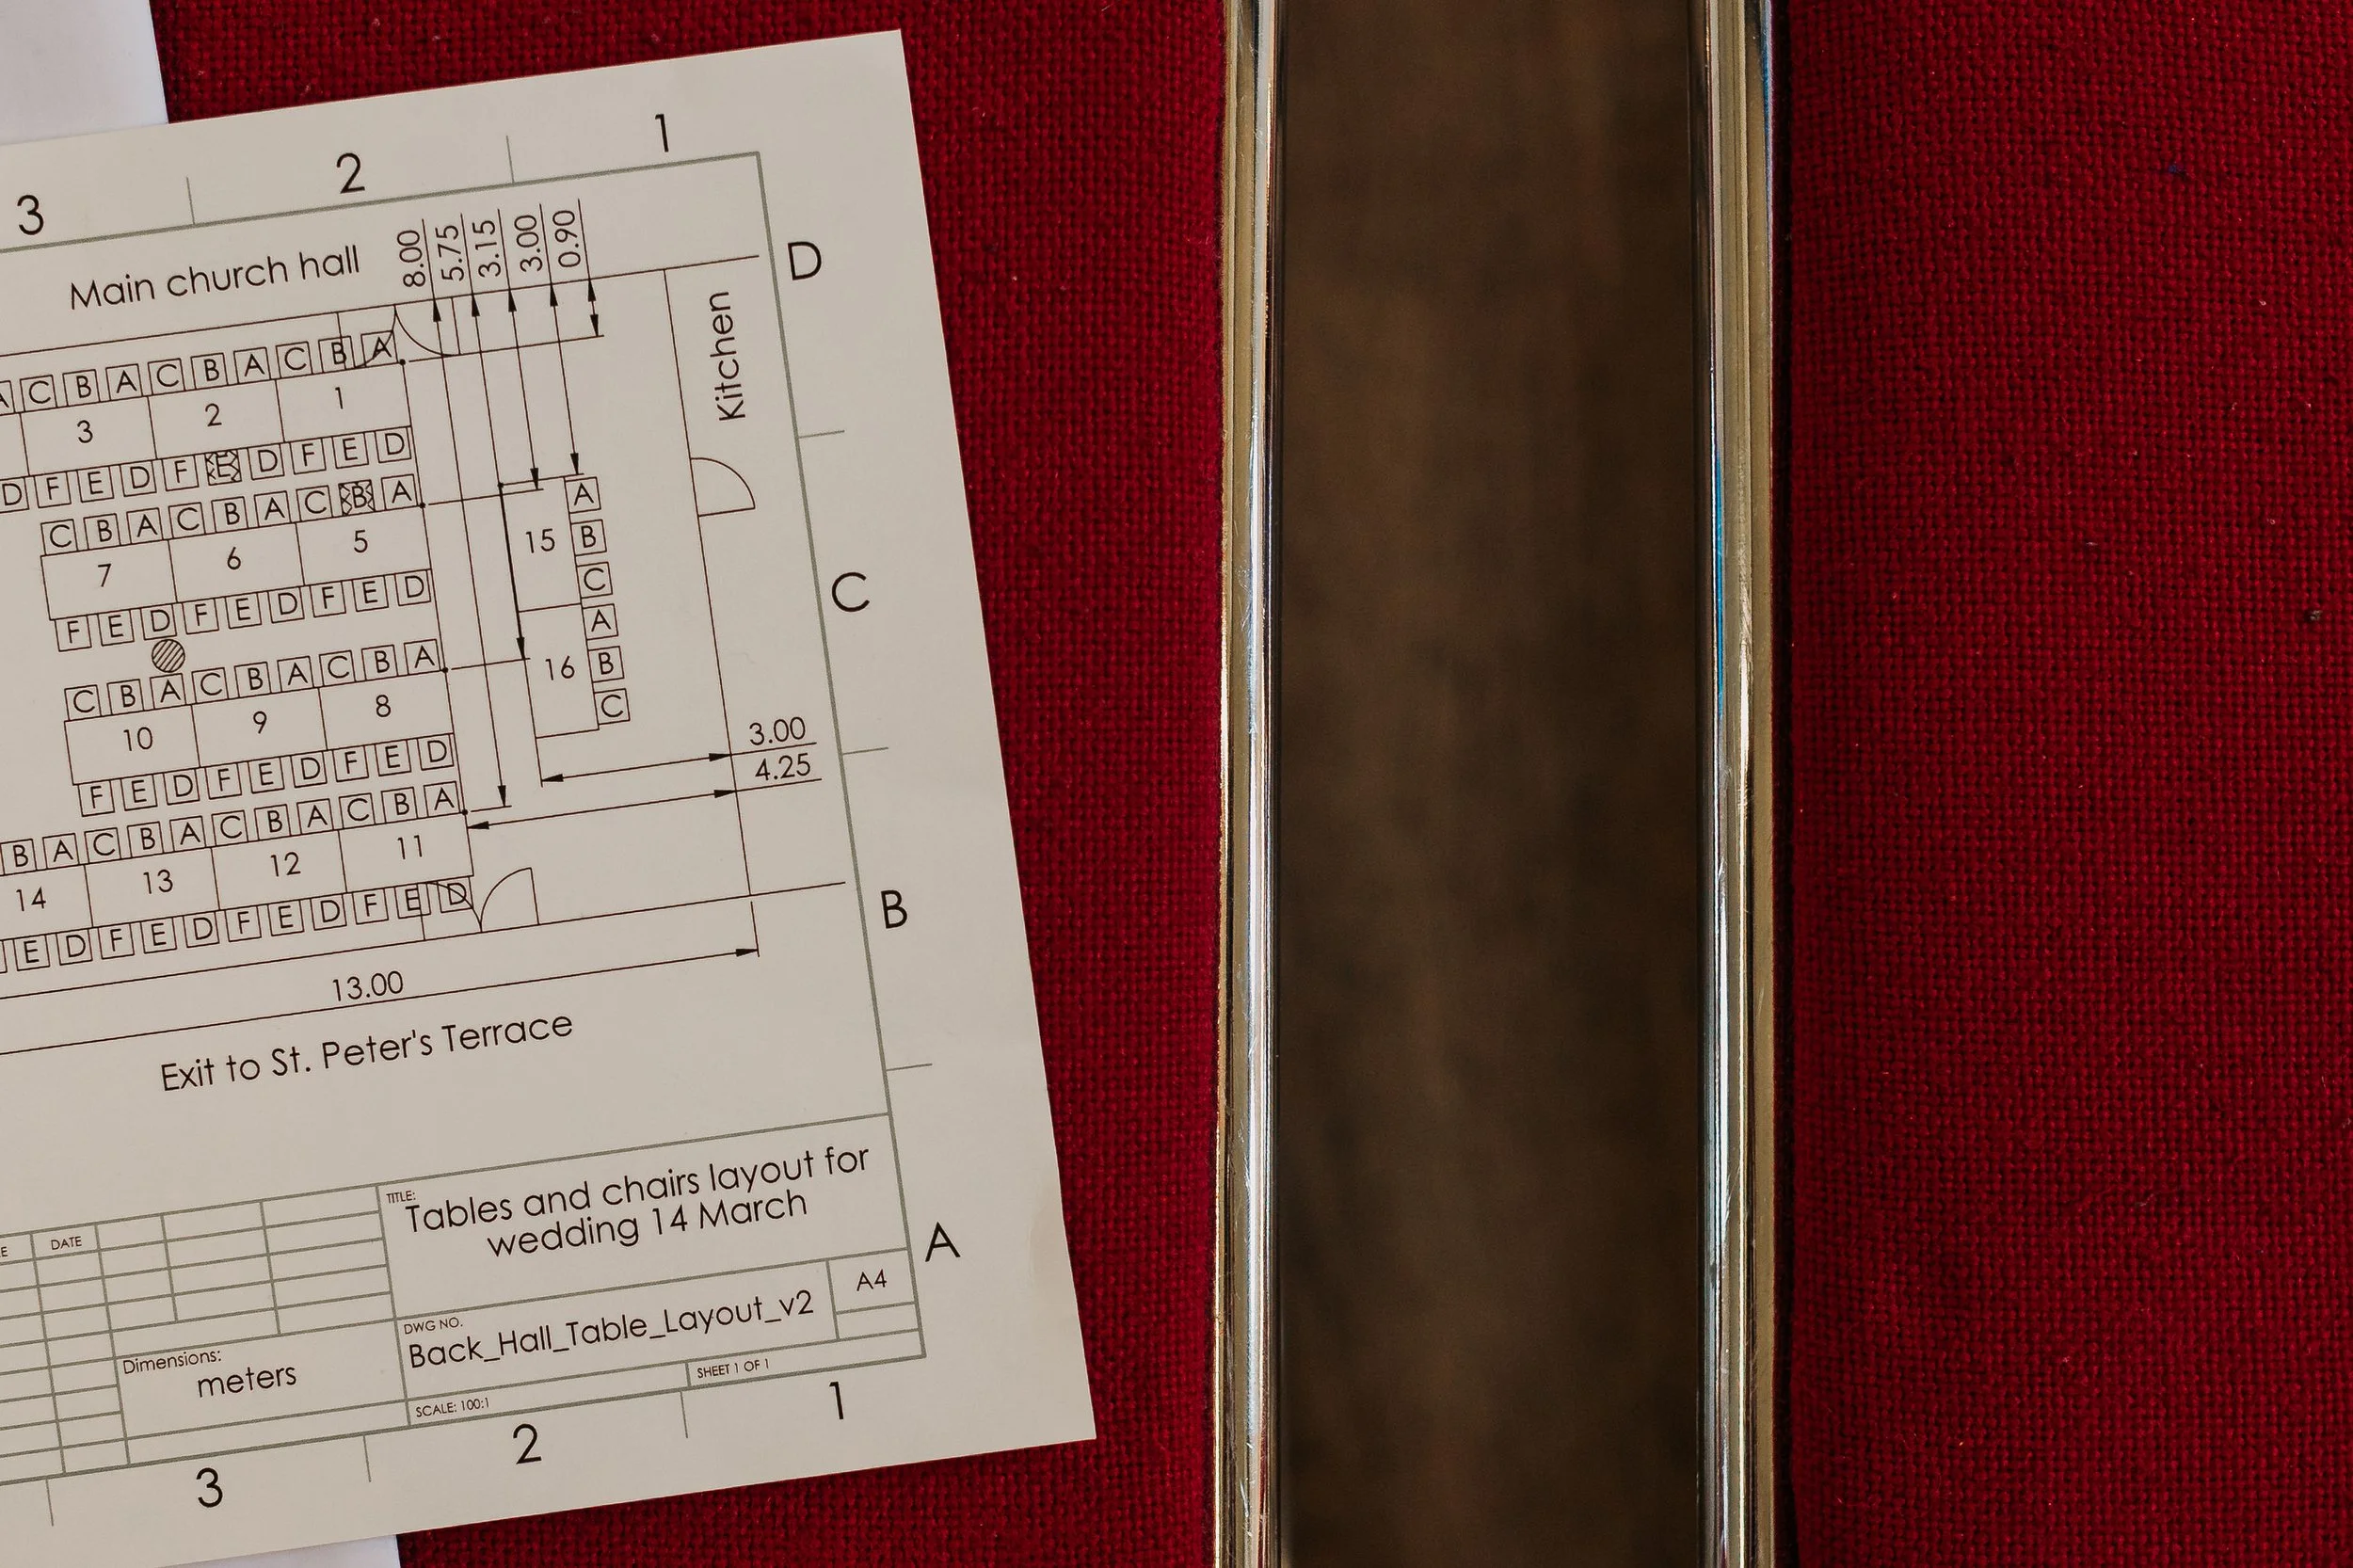 3 2 1
Main church hall
8.00 5.75 3.15 3.00 0.90
D
Kitchen
A C B A C B A C B A
3 2 1
D F E D F E D F E D
C B A C B A C B A
7 6 5
F E D F E D F E D
15 A B C
16 A B C
C
C B A C B A C B A
10 9 8
F E D F E D F E D
3.00
4.25
B A C B A C B A C B A
14 13 12 11
E D F E D F E D F E D
B
13.00
Exit to St. Peter's Terrace
TITLE:
Tables and chairs layout for
wedding 14 March
DATE
A
DWG NO.
Back_Hall_Table_Layout_v2
A4
Dimensions:
meters
SCALE: 100:1
SHEET 1 OF 1
3 2 1